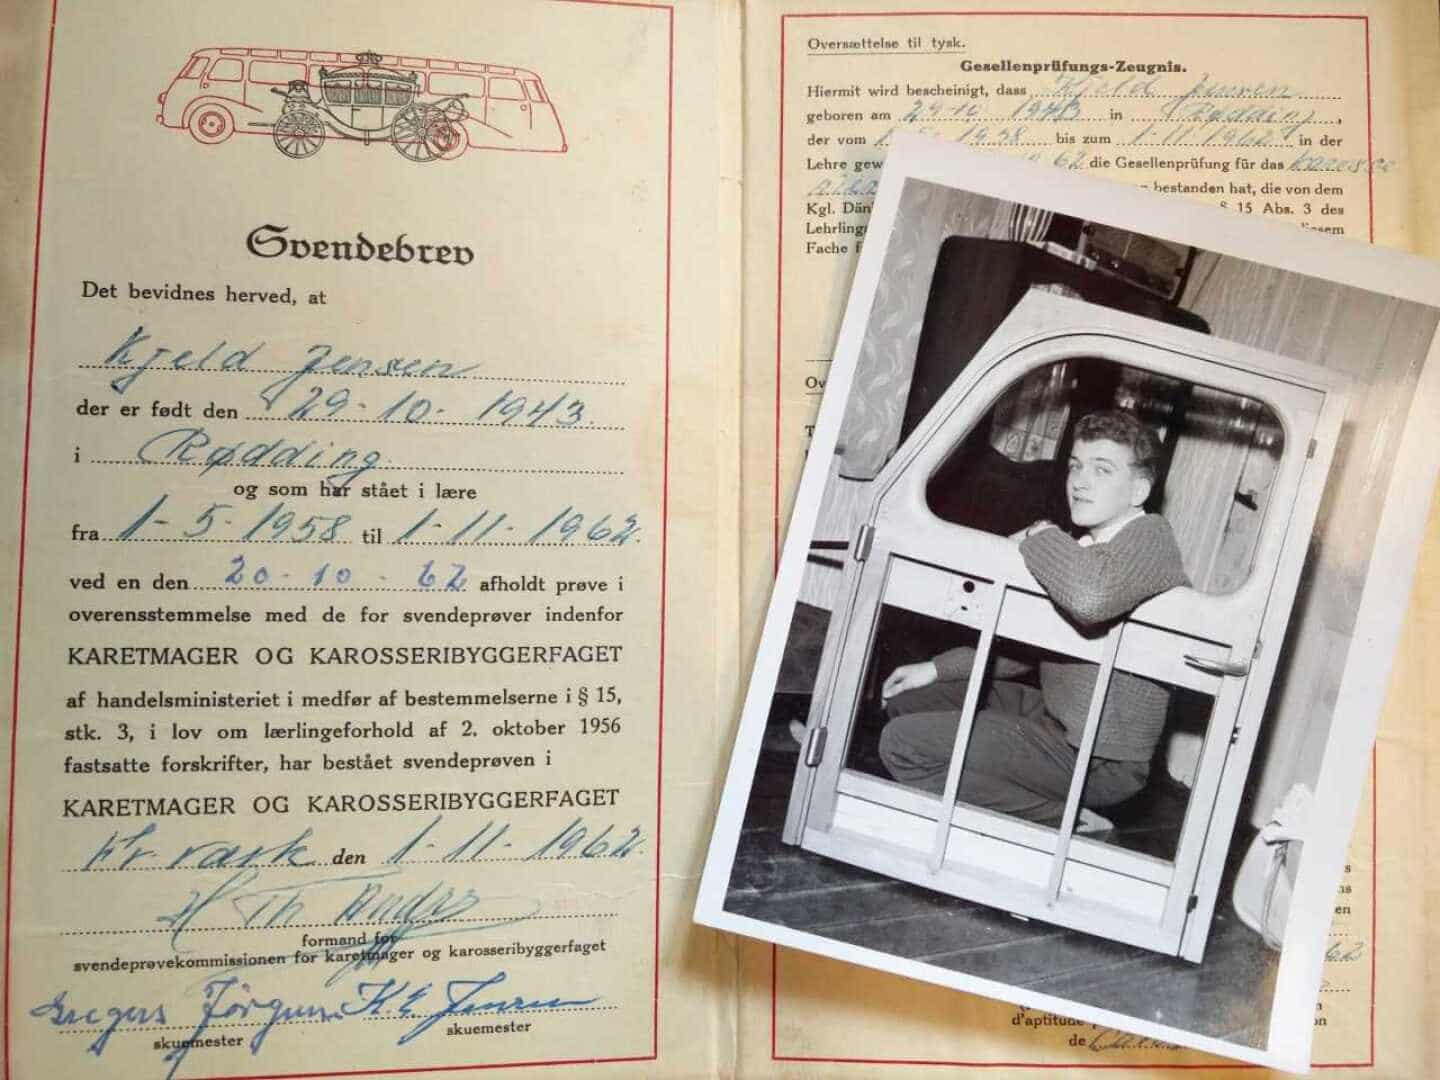 Svendebrev
Det bevidnes herved, at
Kjeld Jensen
der er født den 29-10-1943.
i Rødding
og som har stået i lære
fra 1-5-1958 til 1-11-1962.
ved en den 20-10-62 afholdt prøve i
overensstemmelse med de for svendeprøver indenfor
KARETMAGER OG KAROSSERIBYGGERFAGET
af handelsministeriet i medfør af bestemmelserne i § 15,
stk. 3, i lov om lærlingeforhold af 2. oktober 1956
fastsatte forskrifter, har bestået svendeprøven i
KARETMAGER OG KAROSSERIBYGGERFAGET
Fr. værk den 1-11-1962.
H Th
formand for
svendeprøvekommissionen for karetmager og karosseribyggerfaget
K. E. Jensen
skuemester
skuemester
Oversættelse til tysk.
Gesellenprüfungs-Zeugnis.
Hiermit wird bescheinigt, dass Kjeld Jensen
geboren am 29-10 1943 in Rødding,
der vom 1-5-1958 bis zum 1-11-1962 in der
Lehre gew 62 die Gesellenprüfung für das
bestanden hat, die von dem
Kgl. Dän § 15 Abs. 3 des
Lehrling
Fache f
d'aptitude
de